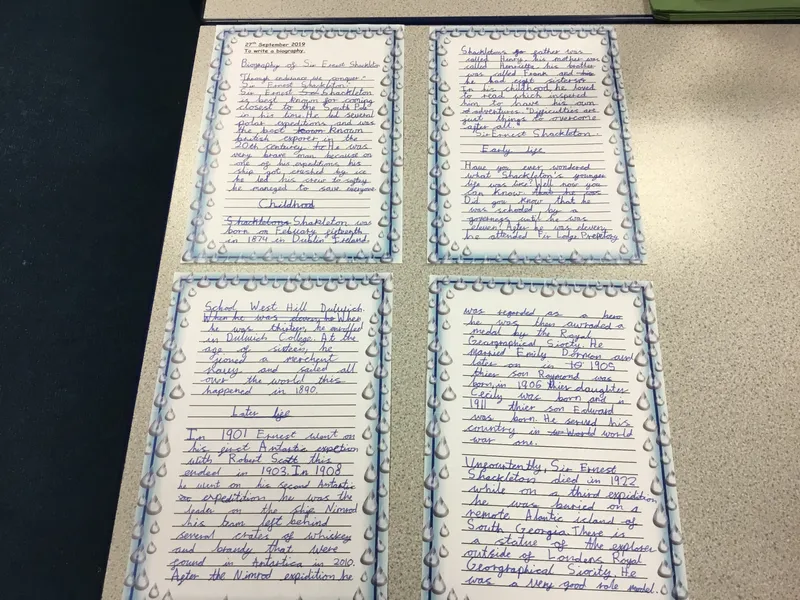 27th September 2019
To write a biography.
Biography of Sir Ernest Shacklto
"Through endurance we conquer."
Sir Ernest Shackleton.
Sir Ernest Shackleton
is best known for coming
closest to the South Pole
in his time. He led several
polar expeditions and was
the best known
british exporer in the
20th centurery to He was
very brave man because on
one of his expeditions his
ship got crushed by ice
he led his crew to saftey
he managed to save everyone
Childhood
Shackletons Shakleton was
born on February fifteenth
in 1874 in Dublin Ireland.
Shackletons father was
called Henry, his mother was
called Henrietta, his brother
was called Frank and his
he had eight sisters
In his childhood he loved
to read which inspired
him to have his own
adventures. "Difficulties are
just things to overcome
after all."
Sir Ernest Shackleton.
Early life
Have you ever wondered
what Shackleton's younger
life was like? Well now you
can know. that he was
Did you know that he
was schooled by a
governess until he was
eleven. After he was eleven
he attended Fir Lodge Prepetory
School West Hill Dulwich.
When he was eleven he When
he was thirteen, he enrolled
in Dulwich College. At the
age of sixteen, he
joined a merchent
Navey and sailed all
over the world this
happened in 1890.
Later life
In 1901 Ernest went on
his first Antastic
with Robert Scott this
ended in 1903. In 1908
he went on his second Antastic
expeditdion he was the
leader on the ship Nimrod
his team left behind
several crates of whiskey
and brandy that were
found in Antartica in 2010.
After the Nimrod expidition he
was regarded as a hero
he was then awraded a
medal by the Royal
Georgraphical Siocity. He
married Emily Dorman and
later on in 1905
thier son Raymond was
born, in 1906 thier daughter
Cecily was born and in
1911 thier son Edward
was born. He served his
country in World world
war one.
Unfountently, Sir Ernest
Shackleton died in 1922
while on a third expidition
he was buried on a
remote Atlantic island of
South Georgia. There is
a statue of the explorer
outside of Londons Royal
Georgraphical Siocity. He
was a very good role model.